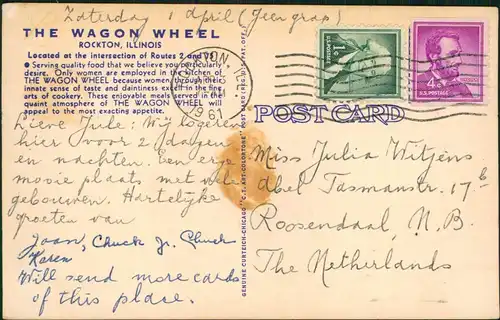 Zaterdag 1 april (Geen grap)
THE WAGON WHEEL
ROCKTON, ILLINOIS
Located at the intersection of Routes 2 and 75
● Serving quality food that we believe you particularly
desire. Only women are employed in the kitchen of
THE WAGON WHEEL because women through their
innate sense of taste and daintiness excel in the fine
arts of cookery. These enjoyable meals served in the
quaint atmosphere of THE WAGON WHEEL will
appeal to the most exacting appetite.
Lieve Jule: Wij logeren
hier voor 2 dagen
en nachten. een erge
mooie plaats met vele
gebouwen. Hartelijke
groeten van
Joan, Chuck Jr. Chuck
Karen
Will send more cards
of this place.
GENUINE CURTEICH-CHICAGO "C.T. ART-COLORTONE" POST CARD (REG. U.S. PAT. OFF.)
1961
1¢
U.S. POSTAGE
4¢
U.S. POSTAGE
POST CARD
Miss Julia Witjens
Abel Tasmanstr. 17
Roosendaal, N.B.
The Netherlands